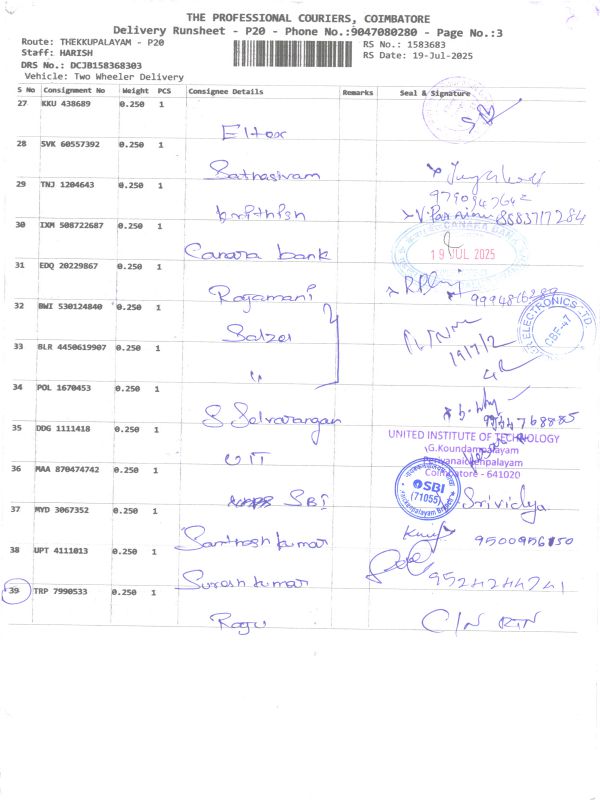 THE PROFESSIONAL COURIERS, COIMBATORE
Delivery Runsheet - P20 - Phone No.:9047080280 - Page No.:3
Route: THEKKUPALAYAM - P20
RS No.: 1583683
Staff: HARISH
RS Date: 19-Jul-2025
DRS No.: DCJB158368303
Vehicle: Two Wheeler Delivery
S No Consignment No Weight PCS Consignee Details Remarks Seal & Signature
27 KKU 438689 0.250 1
Eltex
28 SVK 60557392 0.250 1
Sathasivam
29 TNJ 1204643 0.250 1
brithish
30 IXM 508722687 0.250 1
8883717284
Canara bank
CANARA BANK
19 JUL 2025
31 EDQ 20229867 0.250 1
Ragamani
32 BWI 530124840 0.250 1
Salzer
ELECTRONICS LTD
CBE-47
33 BLR 4450619907 0.250 1
"
34 POL 1670453 0.250 1
S Selvarangan
35 DDG 1111418 0.250 1
UIT
UNITED INSTITUTE OF TECHNOLOGY
G.Koundampalayam
Periyanaickenpalayam
Coimbatore - 641020
36 MAA 870474742 0.250 1
SBI
SBI
(71055)
Srividya
37 MYD 3067352 0.250 1
Santhosh kumar
9500956150
38 UPT 4111013 0.250 1
Suresh kumar
9524244741
39 TRP 7990533 0.250 1
Ragu
C/N RTN